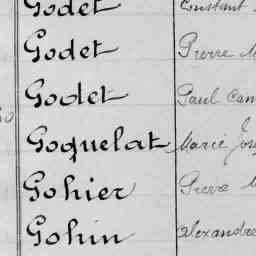 Godet Constant
Godet Pierre M
Godet Paul Cam
Goguelat, Marie Jos
Gohier Pierre M
Gohin Alexandre